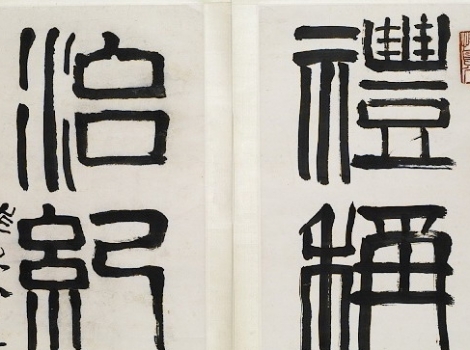 禮稱
治紀